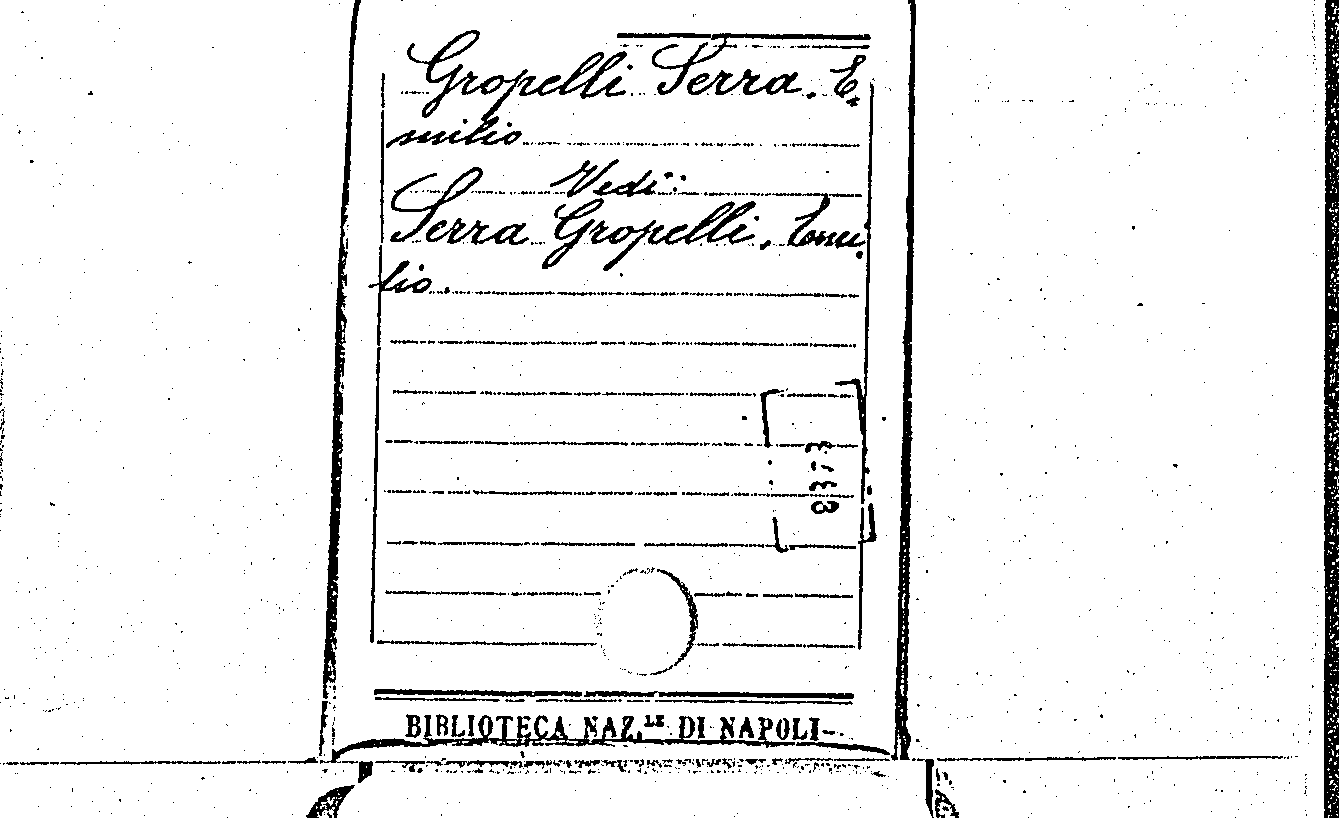 Gropelli Serra. E.
milio
Vedi:
Serra Gropelli. Emi.
lio.
BIBLIOTECA NAZ.LE DI NAPOLI